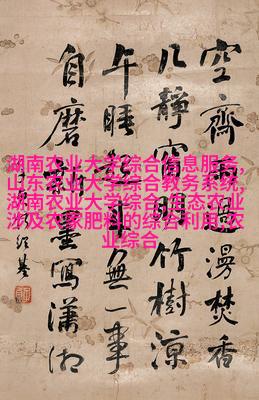 湖南农业大学综合信息服务,
山东农业大学综合教务系统,
湖南农业大学综合,生态农业
涉及农家肥料的综合利用,农
业综合
空齋漫焚香
几靜窗明竹樹涼
午睡無一事
自磨新墨寫瀟湘